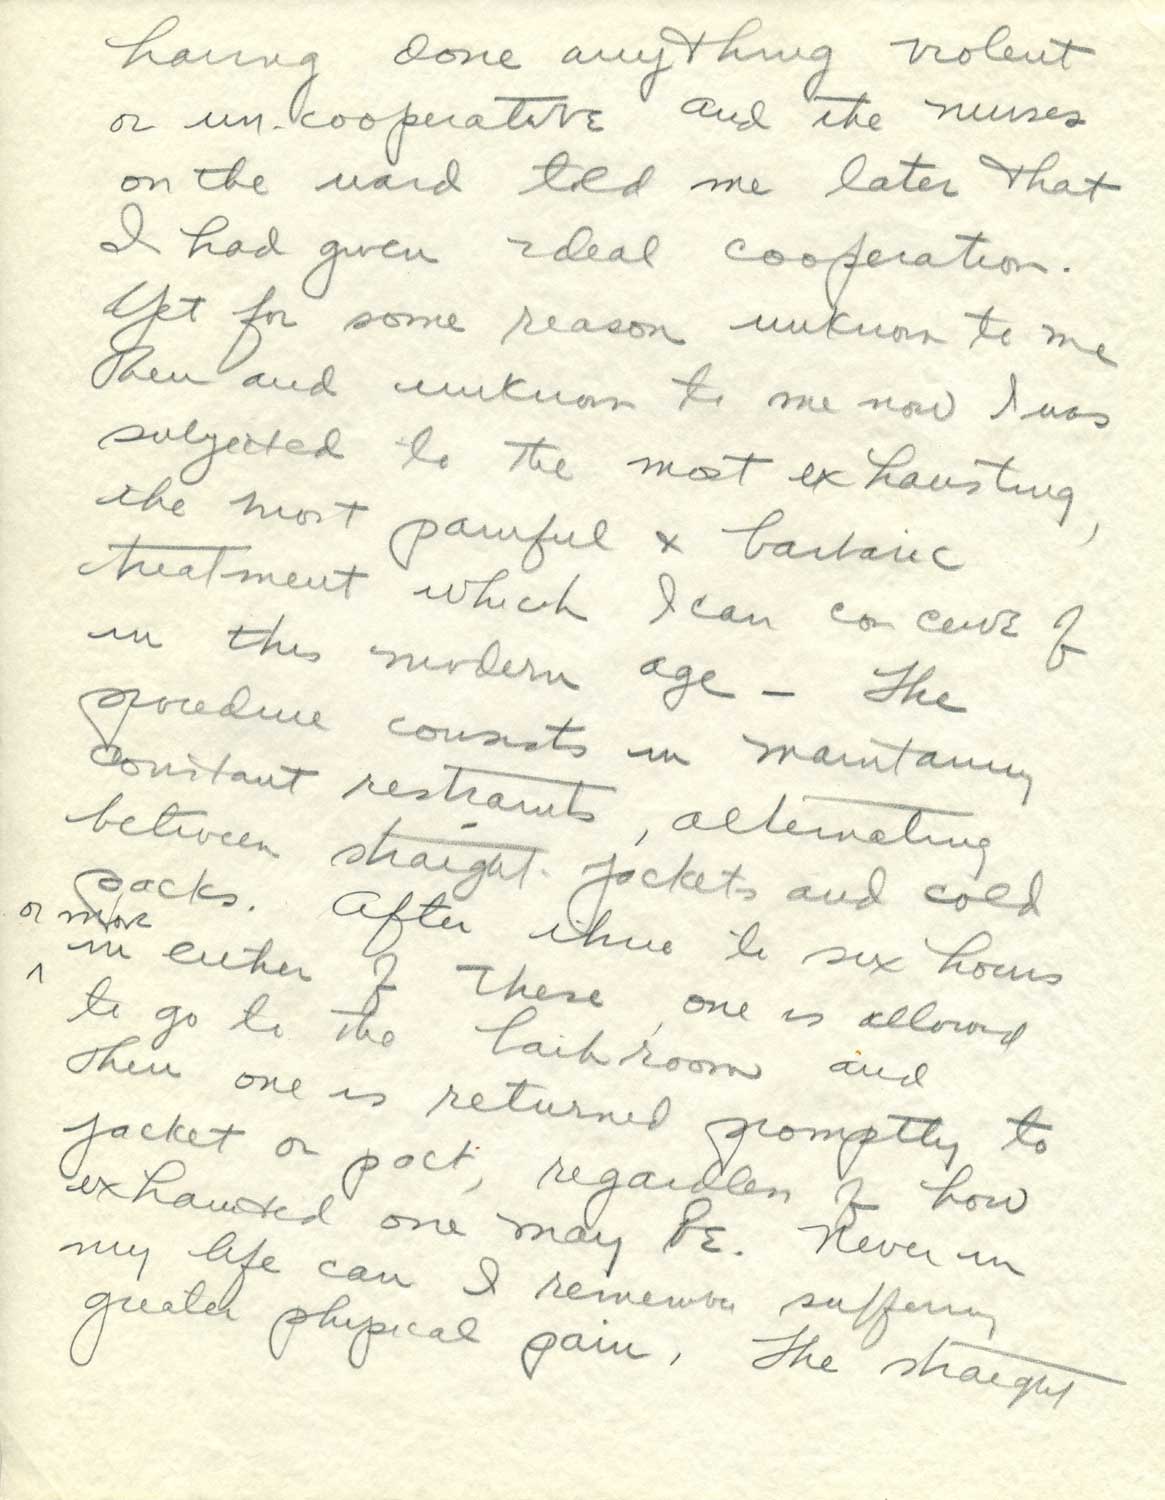 having done anything violent
or un-cooperative and the nurses
on the ward told me later that
I had given ideal cooperation.
Yet for some reason unknown to me
then and unknown to me now I was
subjected to the most exhausting,
the most painful & barbaric
treatment which I can conceive of
in this modern age - The
procedure consists in maintaining
constant restraints, alternating
between straight-jackets and cold
packs. After three to six hours
or more
^ in either of these, one is allowed
to go to the bathroom and
then one is returned promptly to
jacket or pack, regardless of how
exhausted one may be. Never in
my life can I remember suffering
greater physical pain. The straight